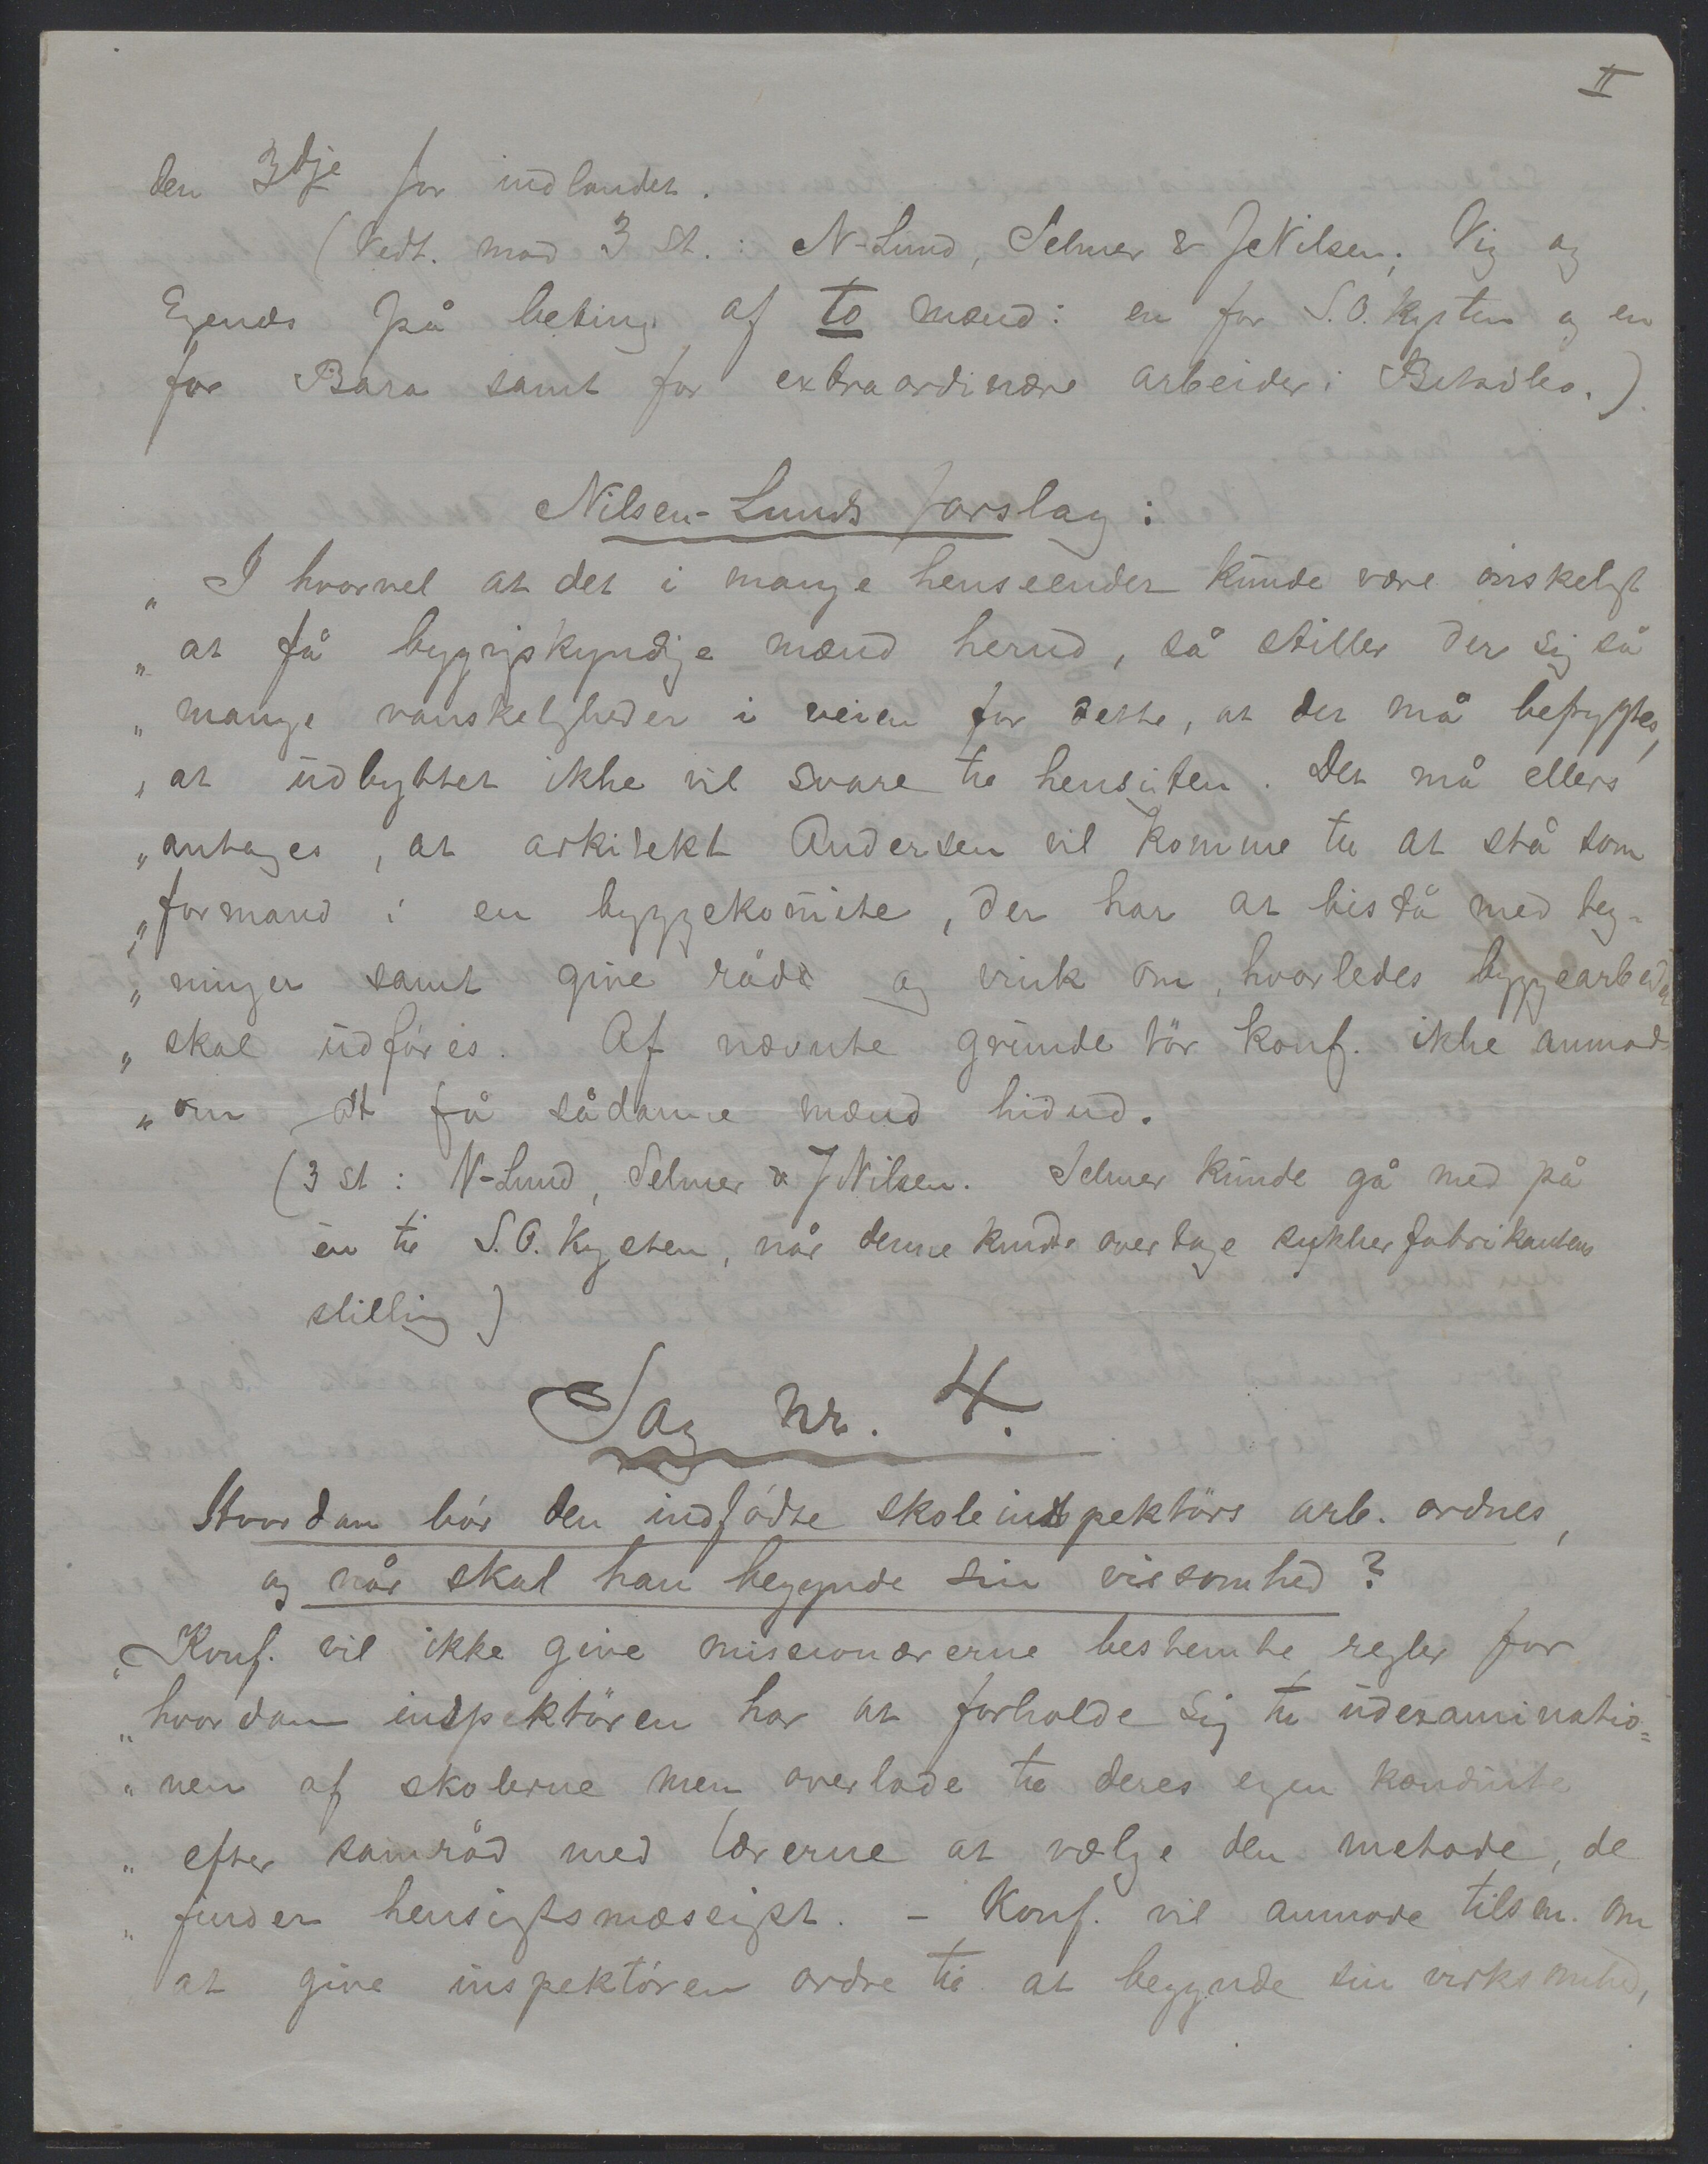 II
den 3dje for indlandet.
(Vedt. mod 3 st.: N-Lund, Selmer & J Nilsen; Vig og
Egenes på beting. af to mænd: en for S.O. Kysten og en
for Bara samt for extraordinære arbeider i Betsileo.)
Nilsen-Lunds forslag:
„ I hvorvel at det i mange henseender kunde være önskeligt
„ at få bygningskyndige mænd herud, så stiller der sig så
„ mange vanskeligheder i veien for dette, at det må befrygtes,
„ at udbyttet ikke vil svare til hensigten. Det må ellers
„ antages, at arkitekt Andersen vil komme til at stå som
„ formand i en byggekomite, der har at bistå med teg-
„ ninger samt give råd og vink om, hvorledes byggearbeider
„ skal udføres. Af nævnte grunde tör konf. ikke anmode
„ om at få sådanne mænd hidud.
(3 st: N-Lund, Selmer & J Nilsen. Selmer kunde gå med på
én til S.O. Kysten, når denne kunde overtage sukkerfabrikantens
stilling)
Sag nr. 4.
Hvordan bör den indfödte skoleinspektörs arb. ordnes,
og når skal han begynde sin virsomhed?
„ Konf. vil ikke give missionærerne bestemte regler for
„ hvordan inspektören har at forholde sig til udexaminatio=
„ nen af skolerne men overlade til deres egen
„ efter samråd med lærerne at vælge den metode, de
„ finder hensigtsmæssigst. – Konf. vil anmode tilsm. om
at give inspektören ordre til at begynde sin virksomhed,